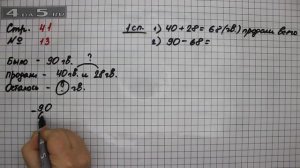 5
Стр. 41
№ 13
Было – 90 гв.
?
Продали – 40 гв. и 28 гв.
Осталось – ? гв.
1 сп.
1) 40 + 28 = 68 (гв.) продали всего
2) 90 – 68 =
– 90